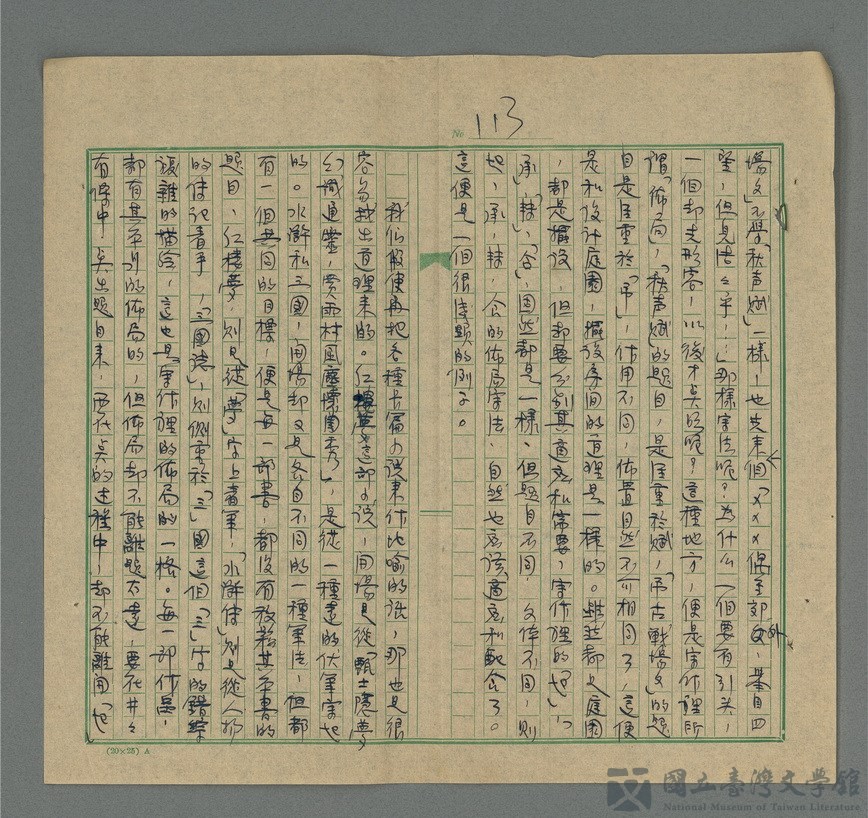 No 113
場文」不學「秋声賦」一樣，也先来個「×××偶至郊外，舉目四
望，但見悟々乎…」那樣字法呢？為什么一個要有引头，
一個却先形容，以後才点照呢？這種地方，便是字作裡所
謂「佈局」，「秋声賦」的題目，是注重於賦，「弔古戰場文」的題
目是注重於「弔」，作用不同，佈置自然不可相同了，這便
是和設計庭園，擺設房間的道理是一樣的。雖然都是庭園
，都是擺設，但却要分别其適宜和需要，字作裡的「起」、「
承」、「轉」、「合」，固然都是一樣、但題目不同，文体不同，則
起，承，轉，合的佈局字法，自然也应該適宜和配合了。
這便是一個很淺顯的例子。
我们假使再把各種长篇小說来作比喻的話，那也是很
容易找出道理来的。紅樓夢這部小說，開場是從「甄士隱夢
幻識通灵，賈雨村風塵懷閨秀」，是從一種遠的伏筆寫起
的。水滸和三國，開場却又是各自不同的一種筆法，但都
有一個共同的目標，便是每一部書，都没有放鬆其本書的
題目，紅樓夢，則是從「夢」字上着筆，「水滸传」則是從人物
的传記着手，「三國誌」，則側重於「三」國這個「三」字的錯綜
複雜的描绘，這也是字作裡的佈局的一格。每一部作品，
都有其不同的佈局的，但佈局却不能離題太遠，要在井々
有條中，点出題目来，而在点的过程中，却不能離開「起」
(20×25) A
國立臺灣文學館
National Museum of Taiwan Literature